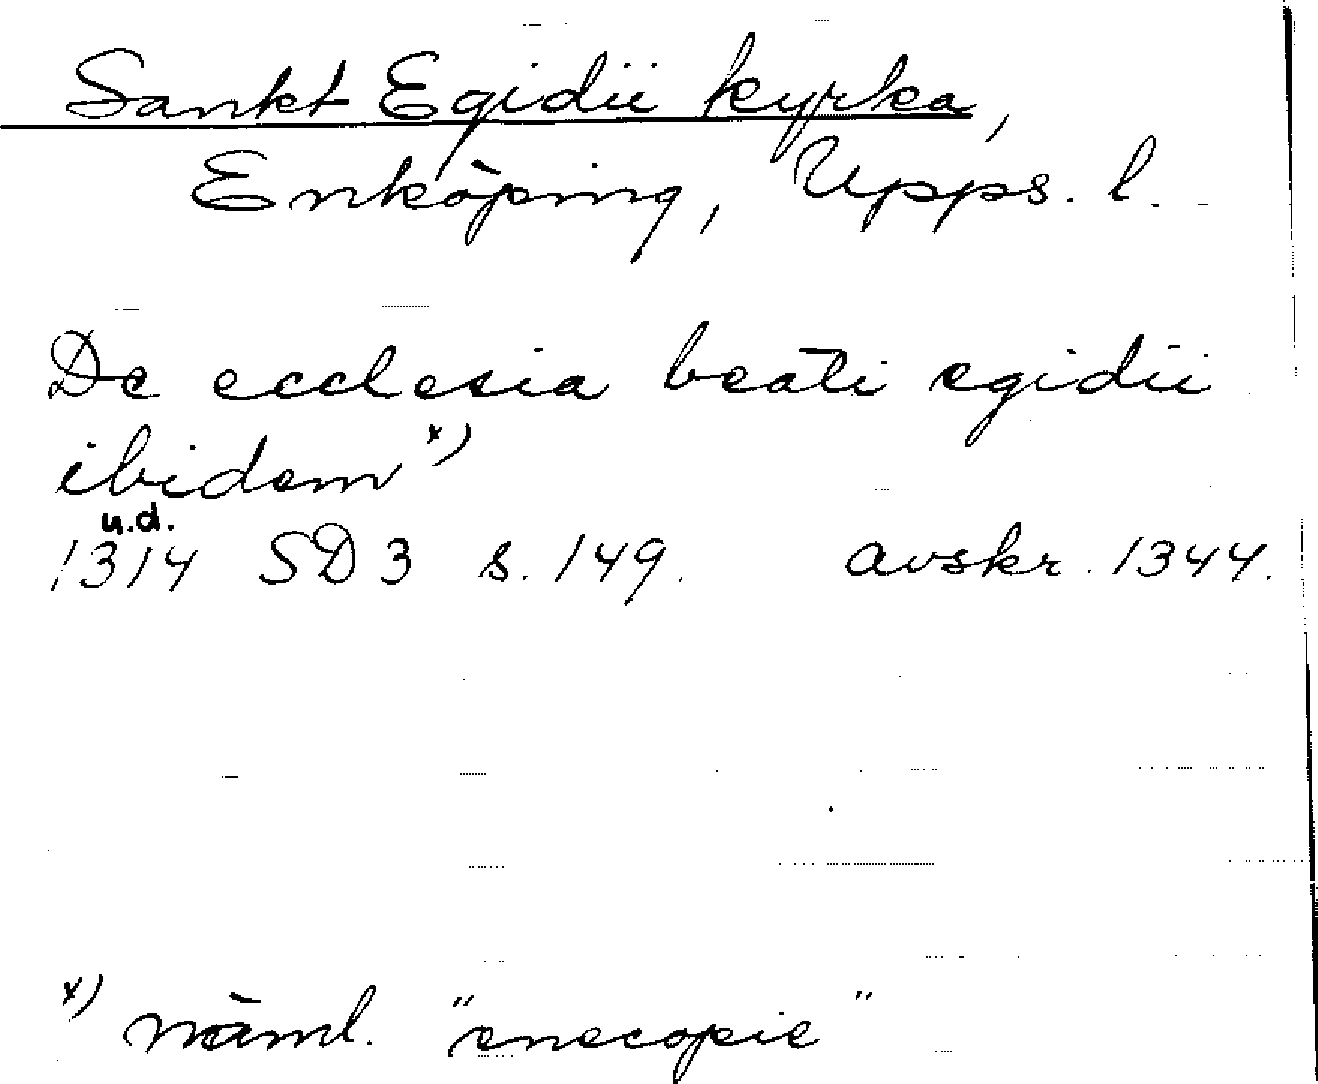 Sankt Egidii kyrka,
Enköping, Upps. l.
De ecclesia beati egidii
ibidem x)
u.d.
1314 SD 3 s. 149. avskr. 1344.
x) näml. "enecopie"